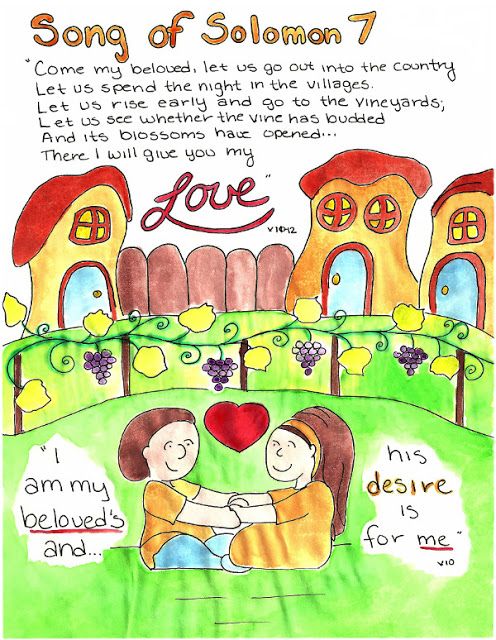 Song of Solomon 7
"Come my beloved, let us go out into the country
Let us spend the night in the villages.
Let us rise early and go to the vineyards;
Let us see whether the vine has budded
And its blossoms have opened...
There I will give you my
Love"
v10-12
"I
am my
beloved's
and...
his
desire
is
for me"
v10